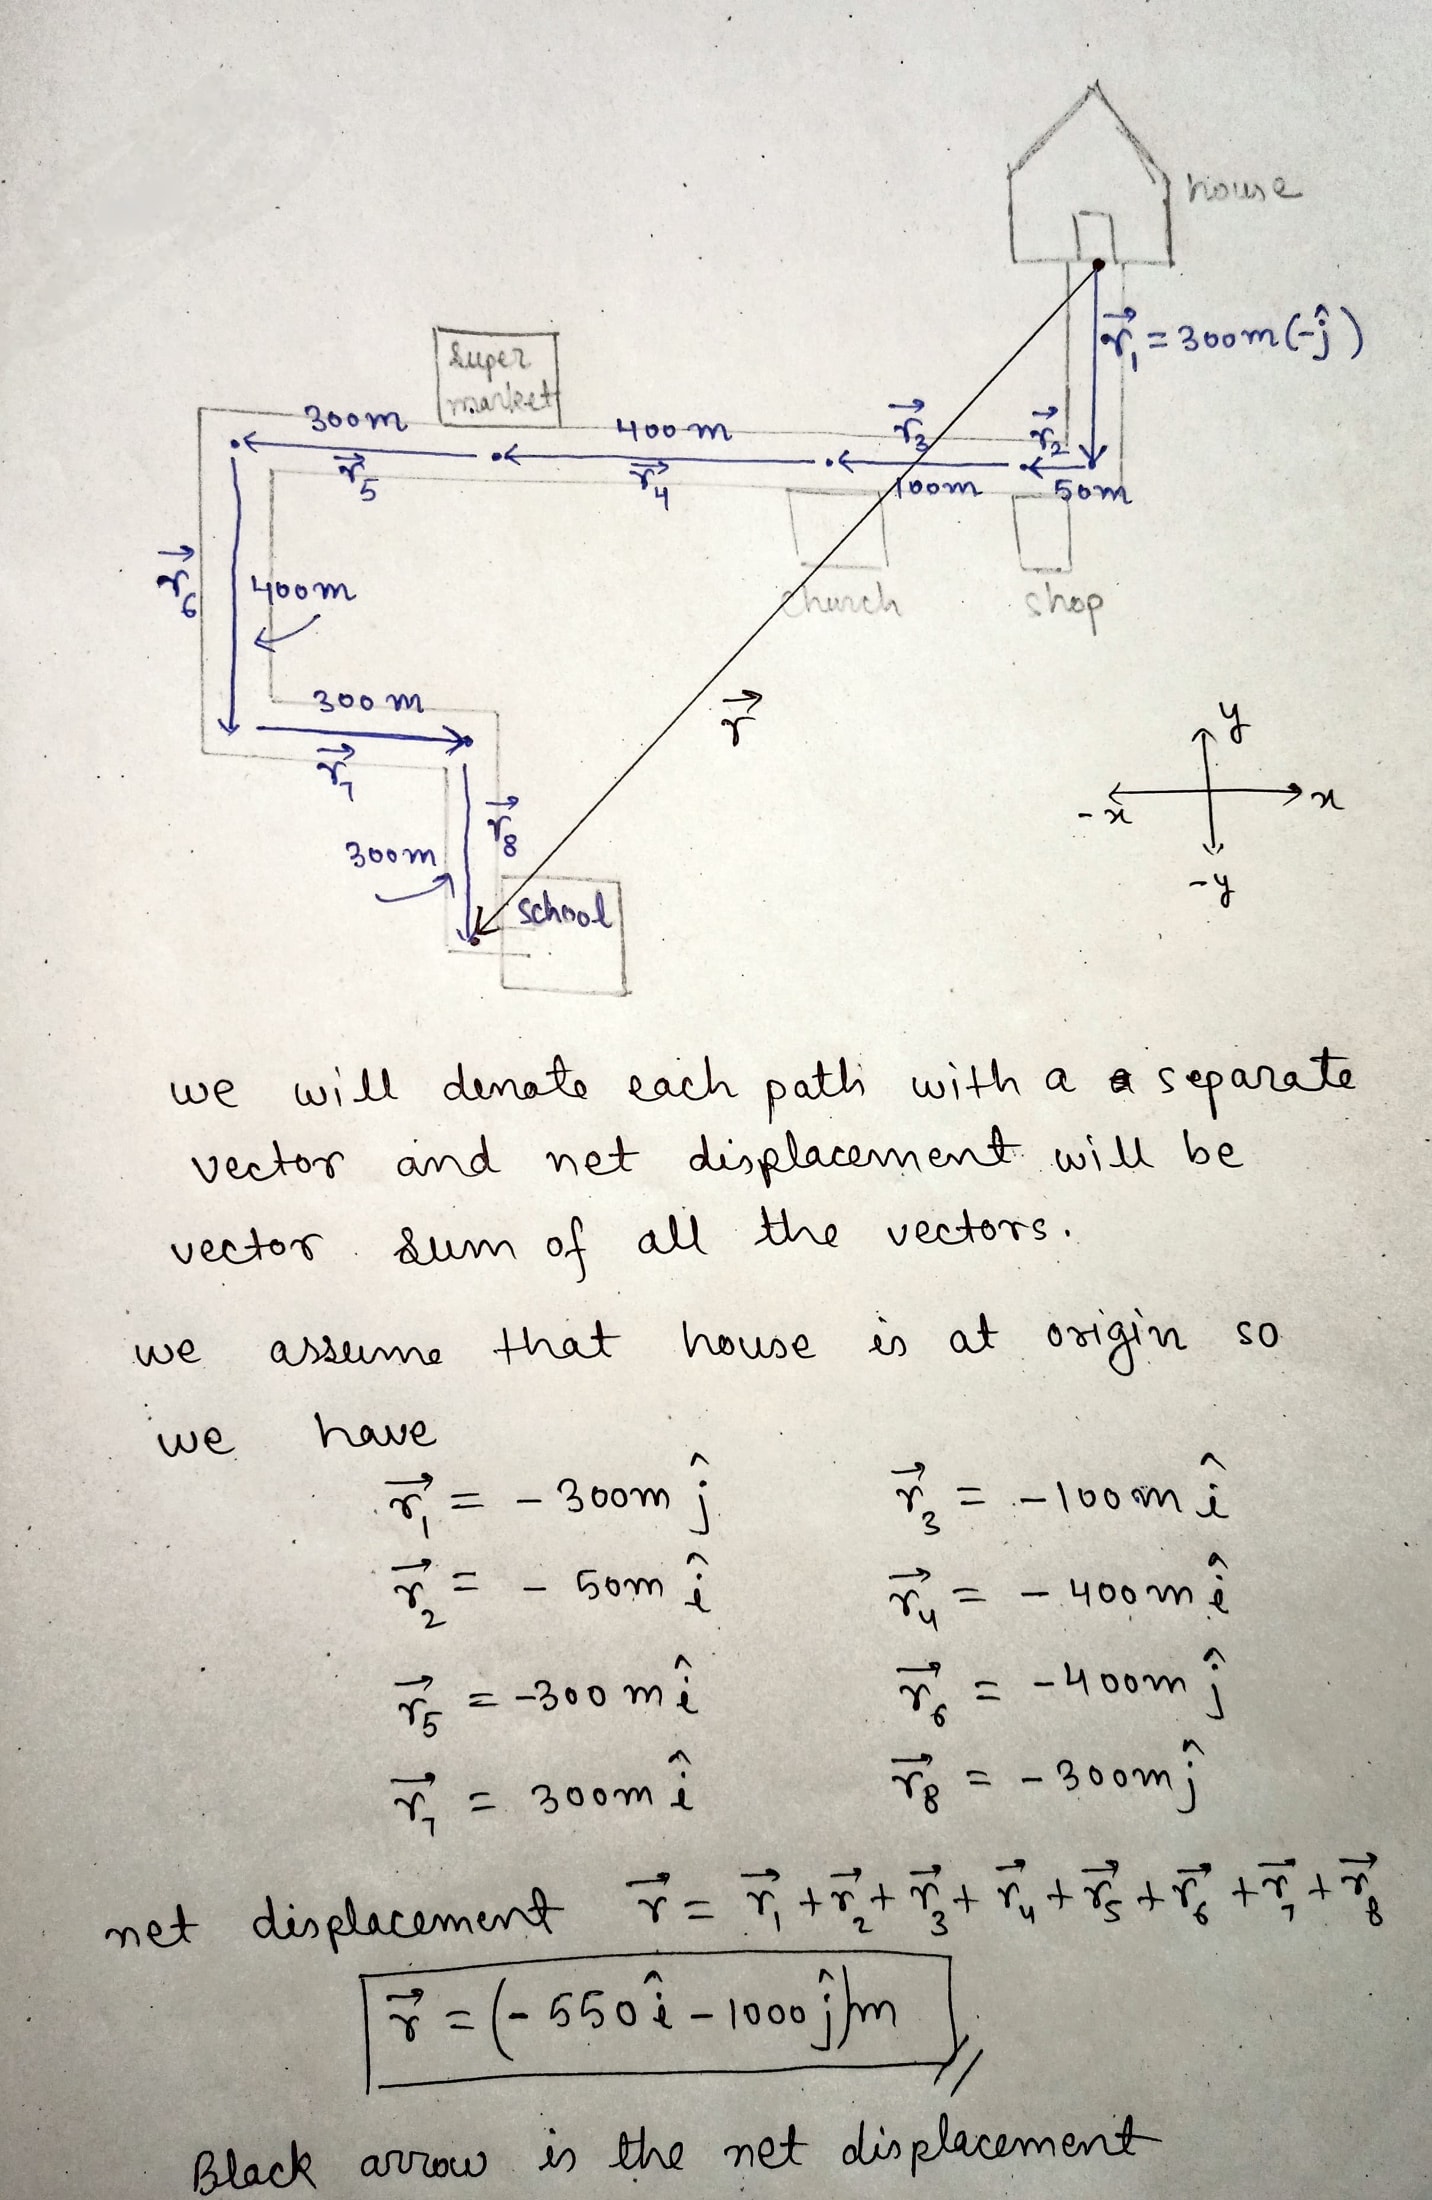 house
r⃗₁ = 300m(-ĵ)
Super
market
300m
400m
r⃗₃
r⃗₂
r⃗₅
r⃗₄
100m
50m
r⃗₆
400m
church
shop
300m
r⃗
r⃗₇
y
-x
x
-y
r⃗₈
300m
school
we will denote each path with a a separate
vector and net displacement will be
vector sum of all the vectors.
we assume that house is at origin so
we have
r⃗₁ = - 300m ĵ r⃗₃ = -100m î
r⃗₂ = - 50m î r⃗₄ = - 400m î
r⃗₅ = -300 m î r⃗₆ = -400m ĵ
r⃗₇ = 300m î r⃗₈ = -300m ĵ
net displacement r⃗ = r⃗₁ + r⃗₂ + r⃗₃ + r⃗₄ + r⃗₅ + r⃗₆ + r⃗₇ + r⃗₈
r⃗ = (-550î - 1000ĵ)m
Black arrow is the net displacement